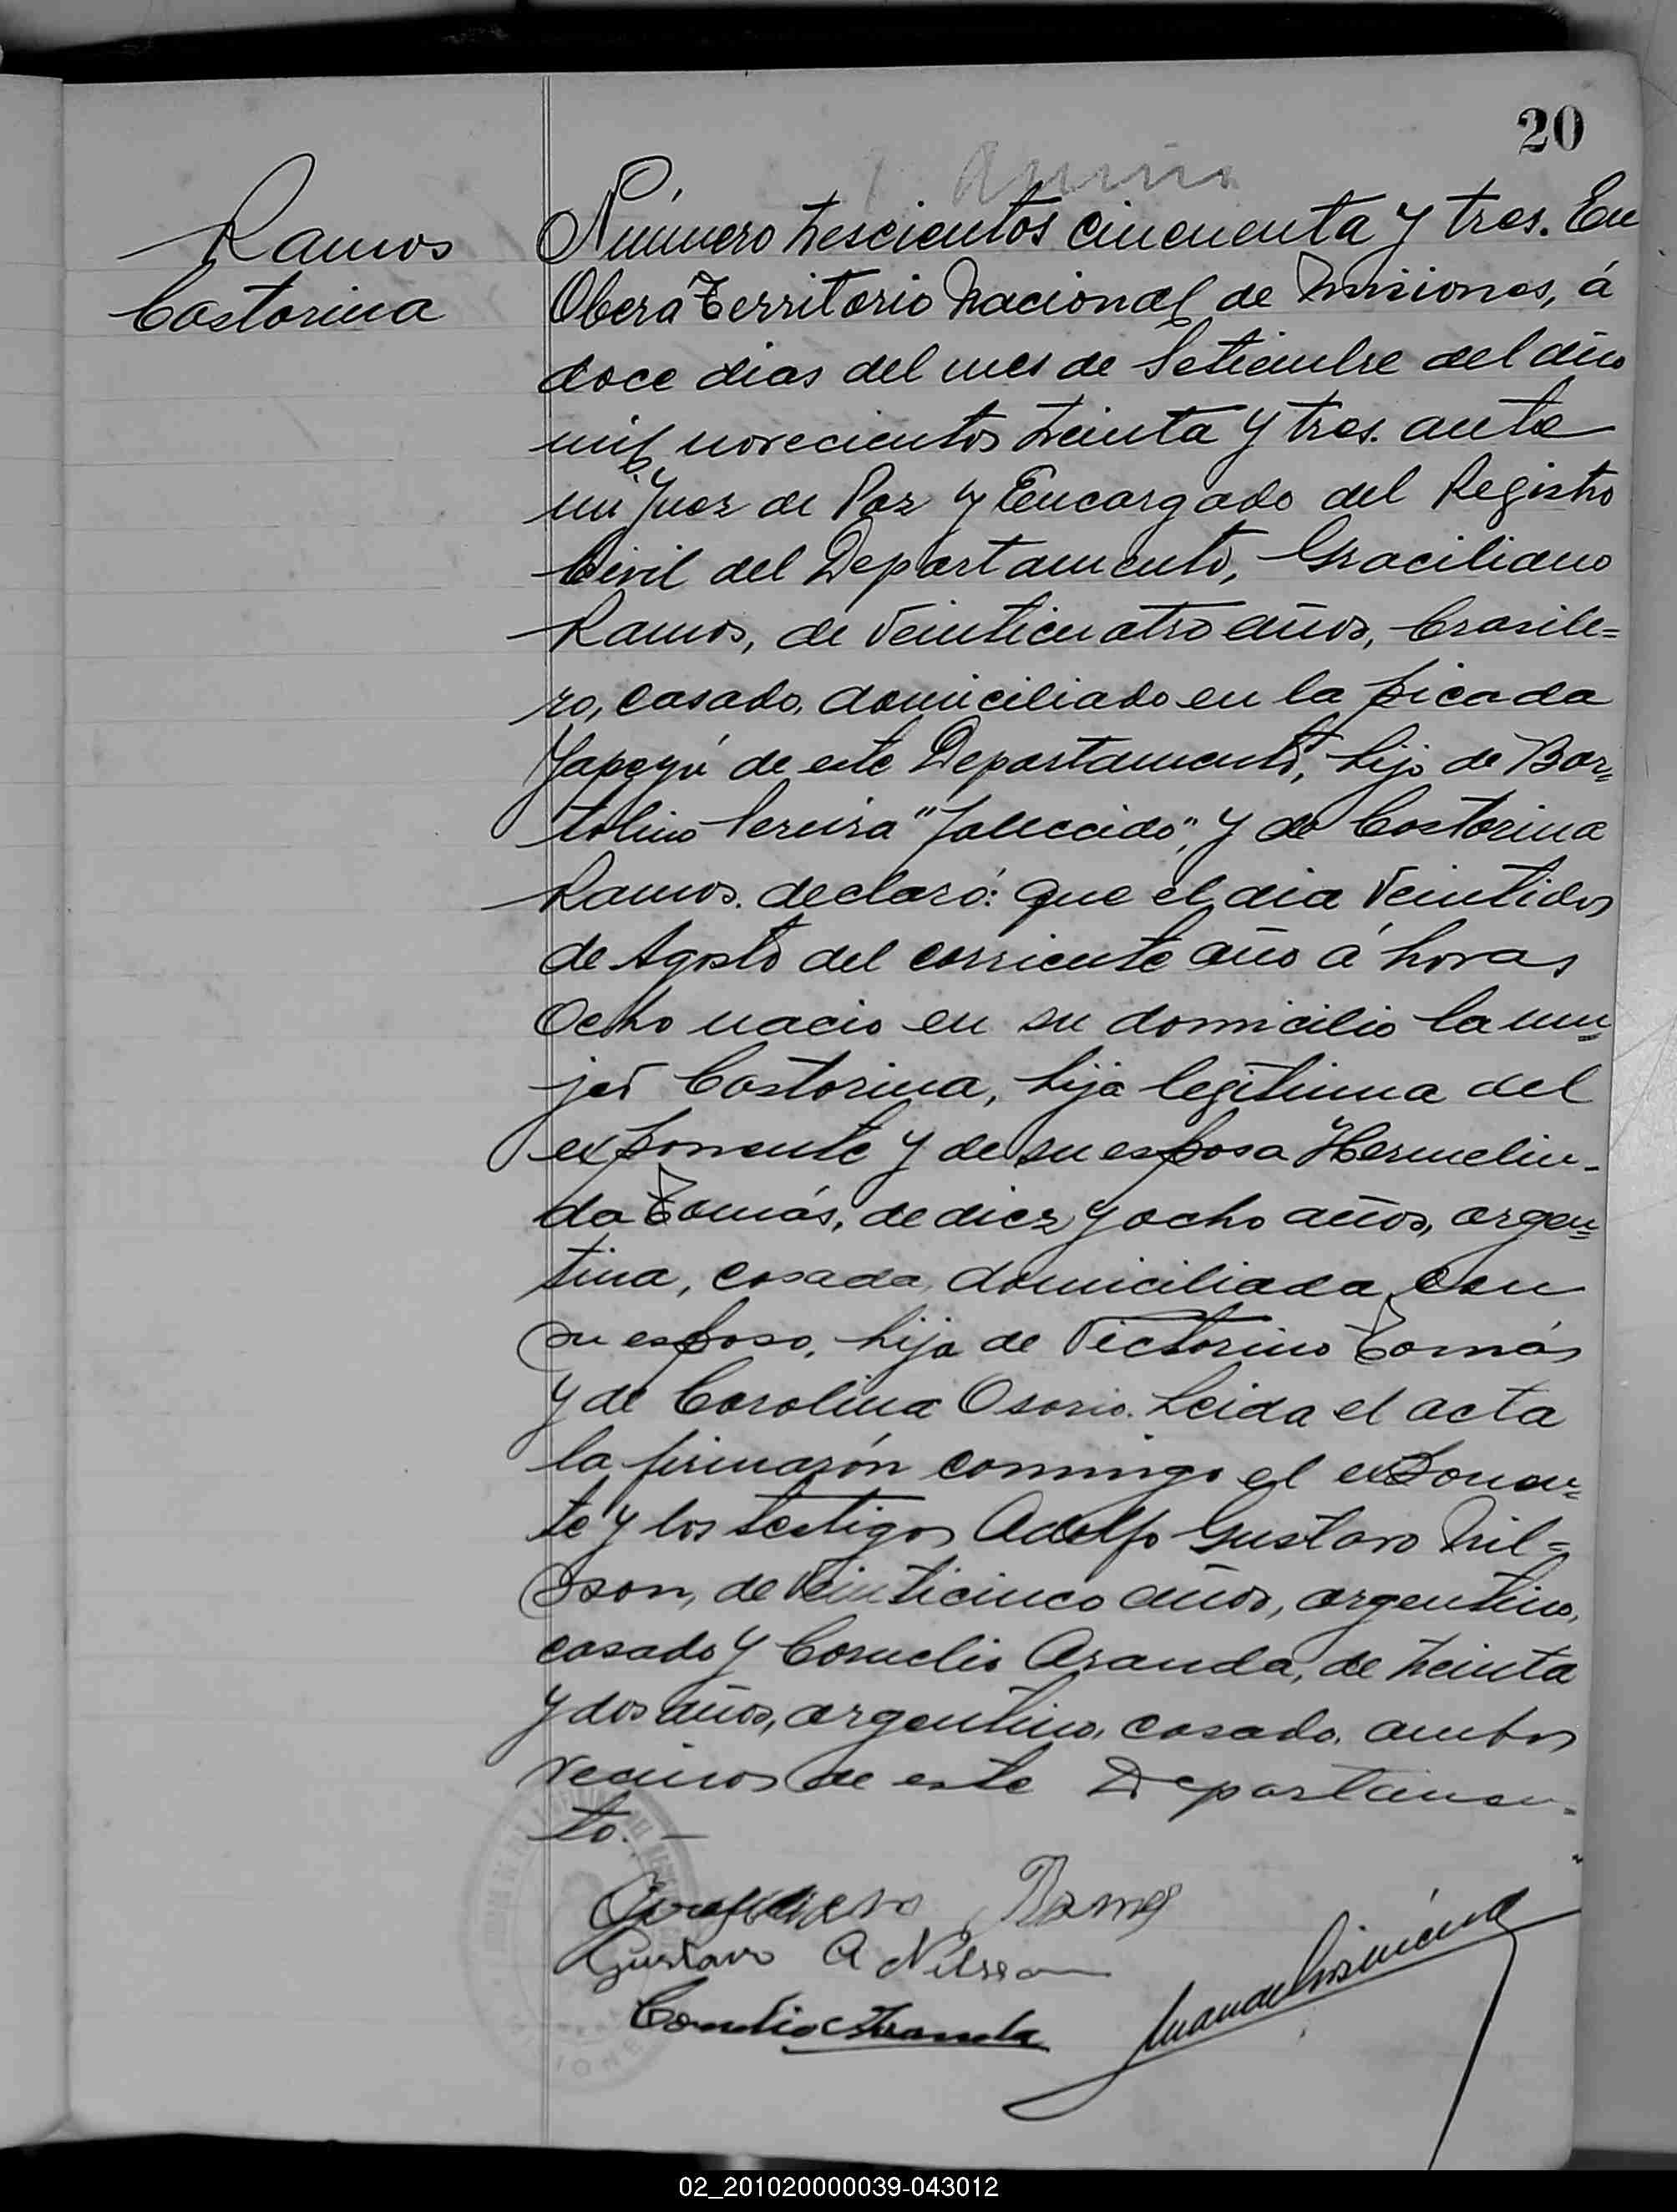 20
Ramos
Castorina
Número trescientos cincuenta y tres. En
Oberá Territorio Nacional de Misiones, á
doce dias del mes de Setiembre del año
mil novecientos treinta y tres. ante
mi Juez de Paz y Encargado del Registro
Civil del Departamento, Graciliano
Ramos, de veinticuatro años, brasile=
ro, casado, domiciliado en la picada
Yapeyú de este Departamento, hijo de Bar=
tolino Pereira "fallecido", y de Castorina
Ramos. declaró: que el dia veintidos
de Agosto del corriente año á horas
ocho nacio en su domicilio la mu=
jer Castorina, hija legitima del
exponente y de su esposa Hermelin-
da Tomás, de diez y ocho años, argen=
tina, casada, domiciliada con
su esposo, hija de Victorino Tomás
y de Carolina Osorio. Leida el acta
la firmarón conmigo el exponen=
te y los testigos Adolfo Gustavo Nil=
sson, de veinticinco años, argentino,
casado y Cornelio Aranda, de treinta
y dos años, argentino, casado, ambos
vecinos de este Departamen=
to. —
Ramos
Gustavo A Nilsson
Cornelio Aranda
02_201020000039-043012